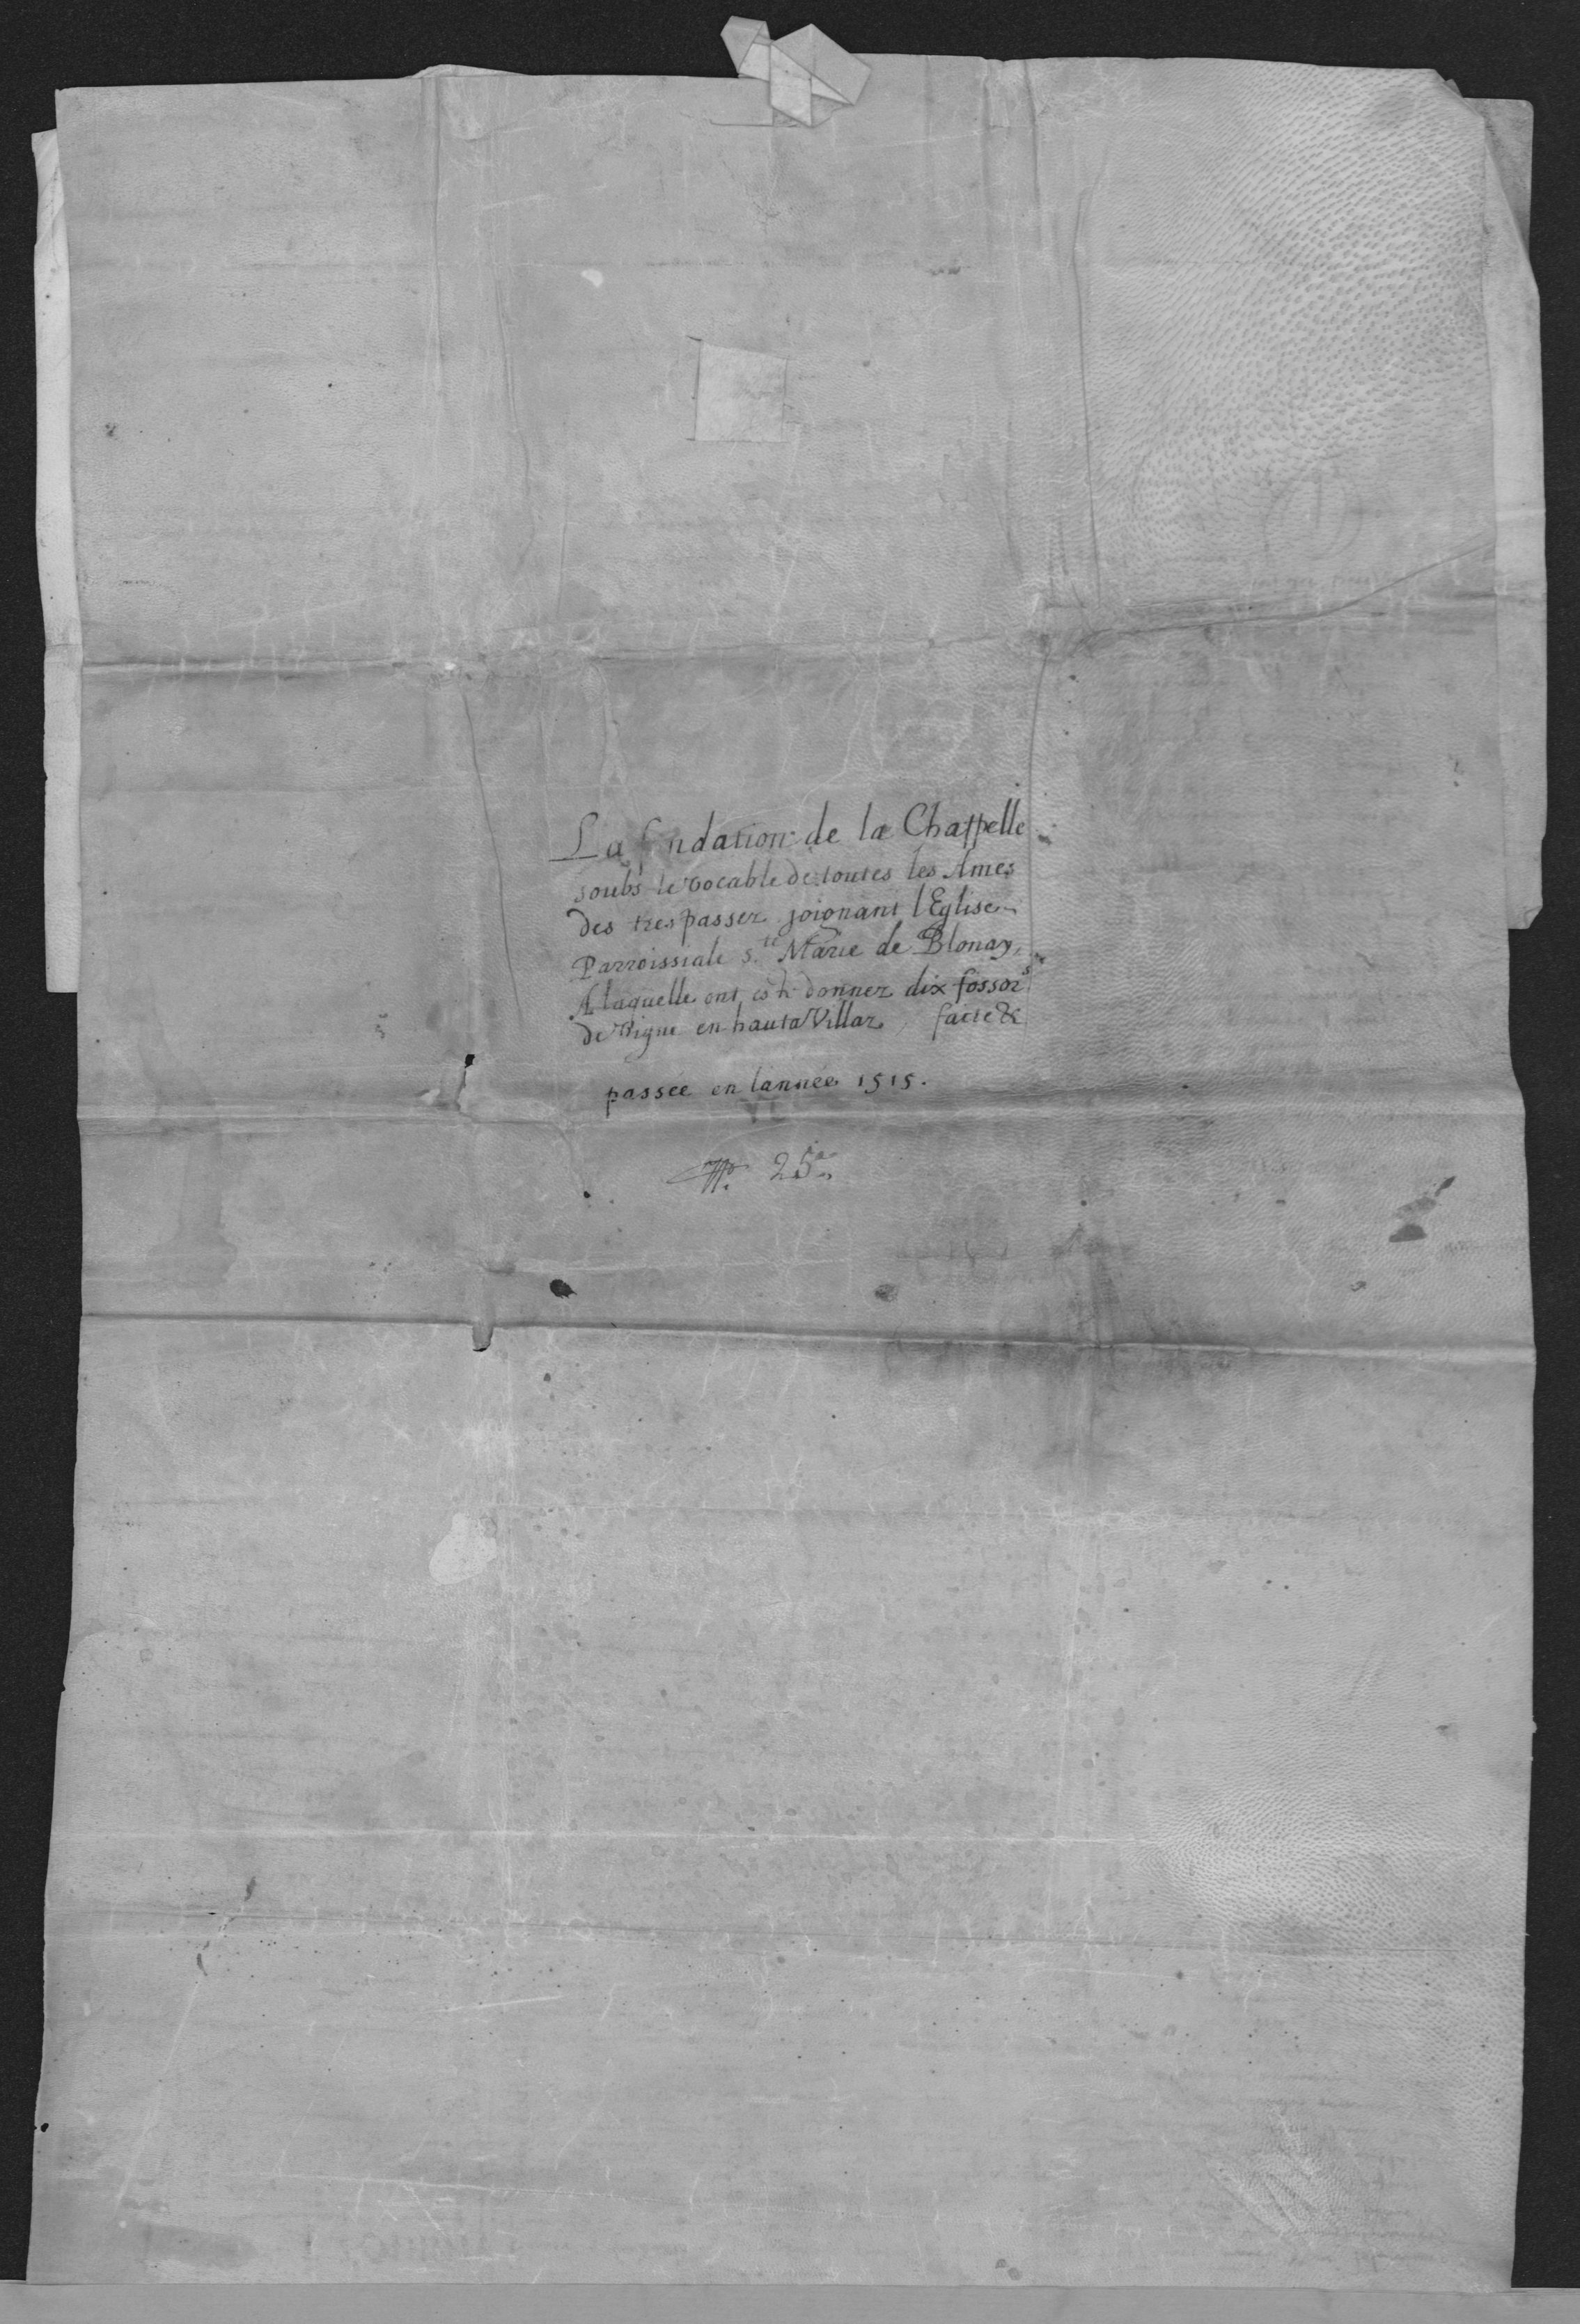 La fondation de la Chappelle
soubs le vocable de toutes les Ames
des trespassez joignant l'Eglise
Parroissiale Ste Marie de Blonay,
A laquelle ont esté donnez dix fossors
de Vigne en hauta Villar, faicte &
passée en lannée 1515.
25